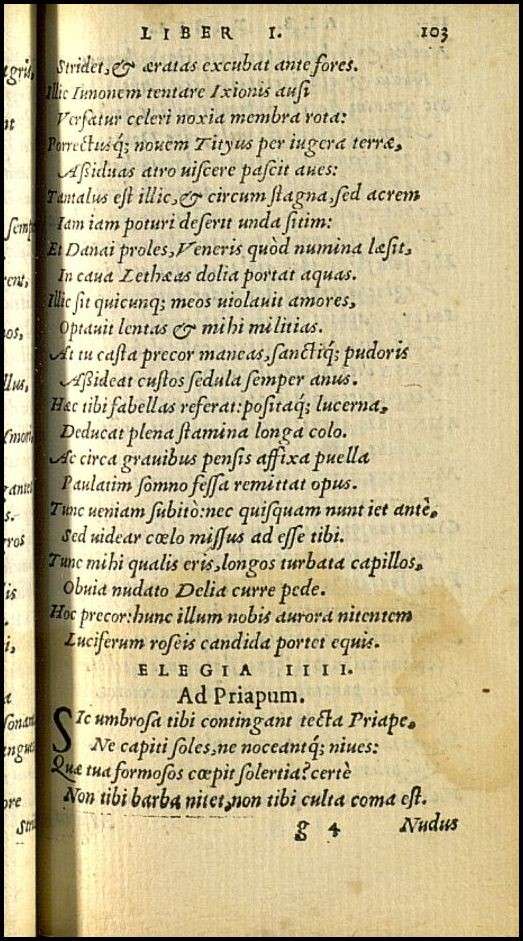 LIBER I. 103
Stridet, & æratas excubat ante fores.
Illic Iunonem tentare Ixionis ausi
Versatur celeri noxia membra rota:
Porrectusq; nouem Tityus per iugera terræ,
Assiduas atro uiscere pascit aues:
Tantalus est illic, & circum stagna, sed acrem
Iam iam poturi deserit unda sitim:
Et Danai proles, Veneris quòd numina læsit,
In caua Lethæas dolia portat aquas.
Illic sit quicunq; meos uiolauit amores,
Optauit lentas & mihi militias.
At tu casta precor maneas, sanctiq; pudoris
Assideat custos sedula semper anus.
Hæc tibi fabellas referat: positaq; lucerna,
Deducat plena stamina longa colo.
Ac circa grauibus pensis affixa puella
Paulatim somno fessa remittat opus.
Tunc ueniam subitò: nec quisquam nuntiet antè,
Sed uidear cœlo missus adesse tibi.
Tunc mihi qualis eris, longos turbata capillos,
Obuia nudato Delia curre pede.
Hoc precor: hunc illum nobis aurora nitentem
Luciferum roseis candida portet equis.
ELEGIA IIII.
Ad Priapum.
SIc umbrosa tibi contingant tecta Priape,
Ne capiti soles, ne noceantq; niues:
Quæ tua formosos cœpit solertia? certè
Non tibi barba nitet, non tibi culta coma est.
g 4 Nudus